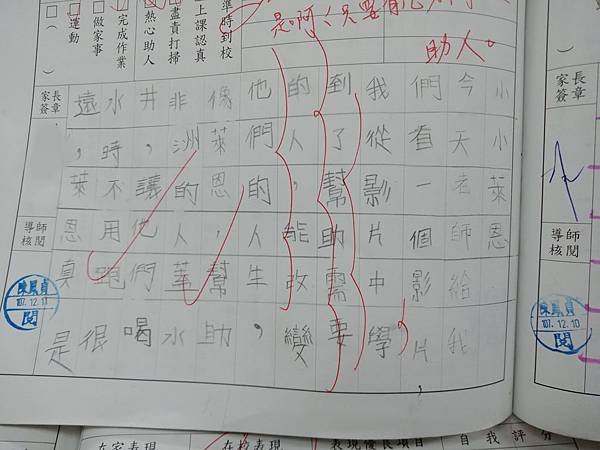 準時到校
上課認真
盡責打掃
熱心助人
完成作業
做家事
運動
是啊！只要有
助人。
小小萊恩
今天老師給我
們看一個影片，
我從影片中學
到了幫助需要
的人，能改變
他們的人生，
像萊恩，幫助
非洲的人華水
井，讓他們喝
水時不用跑很
遠，萊恩真是
家長簽章
導師核閱
陳鳳貞
107.12.11
閱
家長簽章
導師核閱
陳鳳貞
107.12.10
閱
在家表現
在校表現
表現優良項目
自我評分